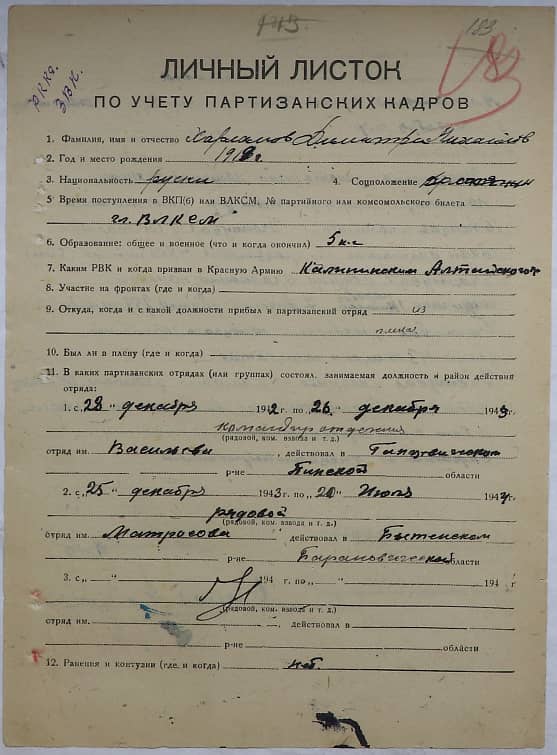 183
РККА.
ЗВК.
183
ЛИЧНЫЙ ЛИСТОК
ПО УЧЕТУ ПАРТИЗАНСКИХ КАДРОВ
1. Фамилия, имя и отчество
2. Год и место рождения
3. Национальность руски 4. Соцположение
5 Время поступления в ВКП(б) или ВЛКСМ, № партийного или комсомольского билета
чл. ВЛКСМ
6. Образование: общее и военное (что и когда окончил) 5 кл
7. Каким РВК и когда призван в Красную Армию Калининским Алтайского
8. Участие на фронтах (где и когда)
9. Откуда, когда и с какой должности прибыл в партизанский отряд из
плена
10. Был ли в плену (где и когда)
11. В каких партизанских отрядах (или группах) состоял, занимаемая должность и район действия
отряда:
1. с „28" декабря 1942 г. по „26" декабря 1943 г.
командир отделения
(рядовой, ком. взвода и т. д.)
отряд им. Васильева, действовал в
р-не Пинской области
2. с „25" декабря 1943 г. по „20" Июля 1944 г.
рядовой
(рядовой, ком. взвода и т. д.)
отряд им. Матросова действовал в Бытенском
р-не Барановической области
3. с „ " 194 г. по „ " 194 г
(рядовой, ком. взвода и т. д.)
отряд им. , действовал в
р-не области
12. Ранения и контузии (где и когда) нет